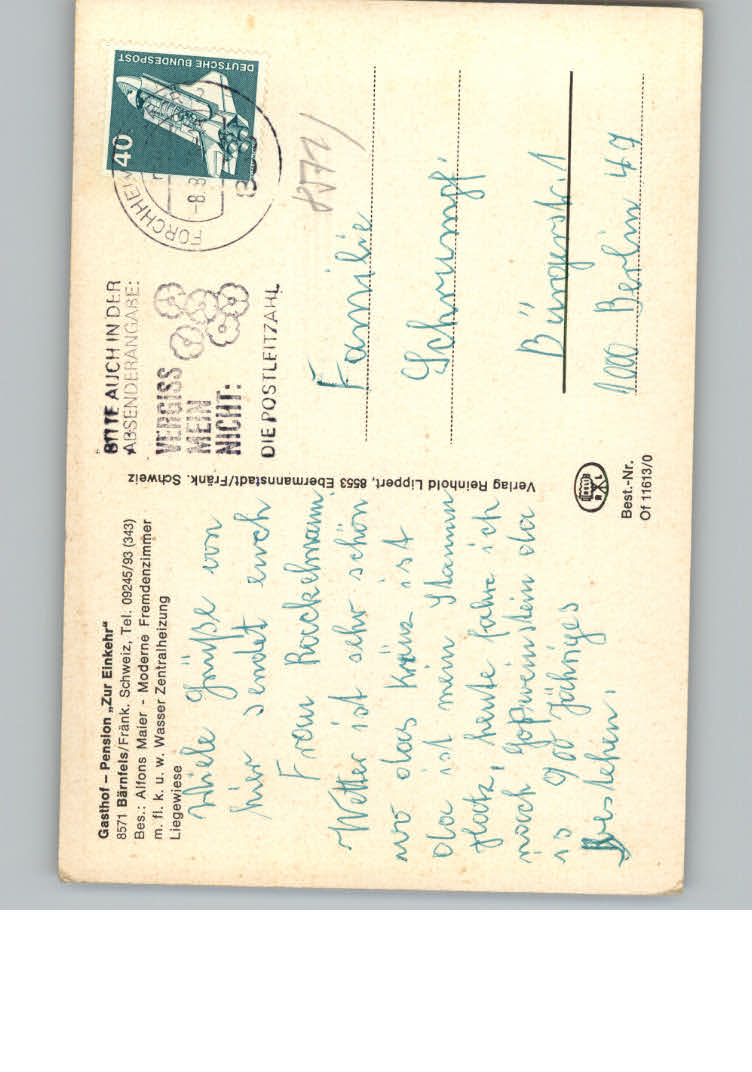 Gasthof – Pension „Zur Einkehr"
8571 Bärnfels/Fränk. Schweiz, Tel. 09245/93 (343)
Bes.: Alfons Maier - Moderne Fremdenzimmer
m. fl. k. u. w. Wasser Zentralheizung
Liegewiese
Viele Grüße von
hier sendet euch
Frau Rackelmann
Wetter ist sehr schön
wo das Kreuz ist
da ist mein Stamm
platz, heute fahre ich
nach Gopweinstein da
is 900 Jähriges
bestehen.
Verlag Reinhold Lippert, 8553 Ebermannstadt/Fränk. Schweiz
BITTE AUCH IN DER
ABSENDERANGABE:
VERGISS
MEIN
NICHT:
DIE POSTLEITZAHL
FORCHHEIM
-8.8
DEUTSCHE BUNDESPOST
40
8571/
Familie
Schrumpf
Bürgerstr. 1
1000 Berlin 47
R L
Best.-Nr.
Of 11613/0